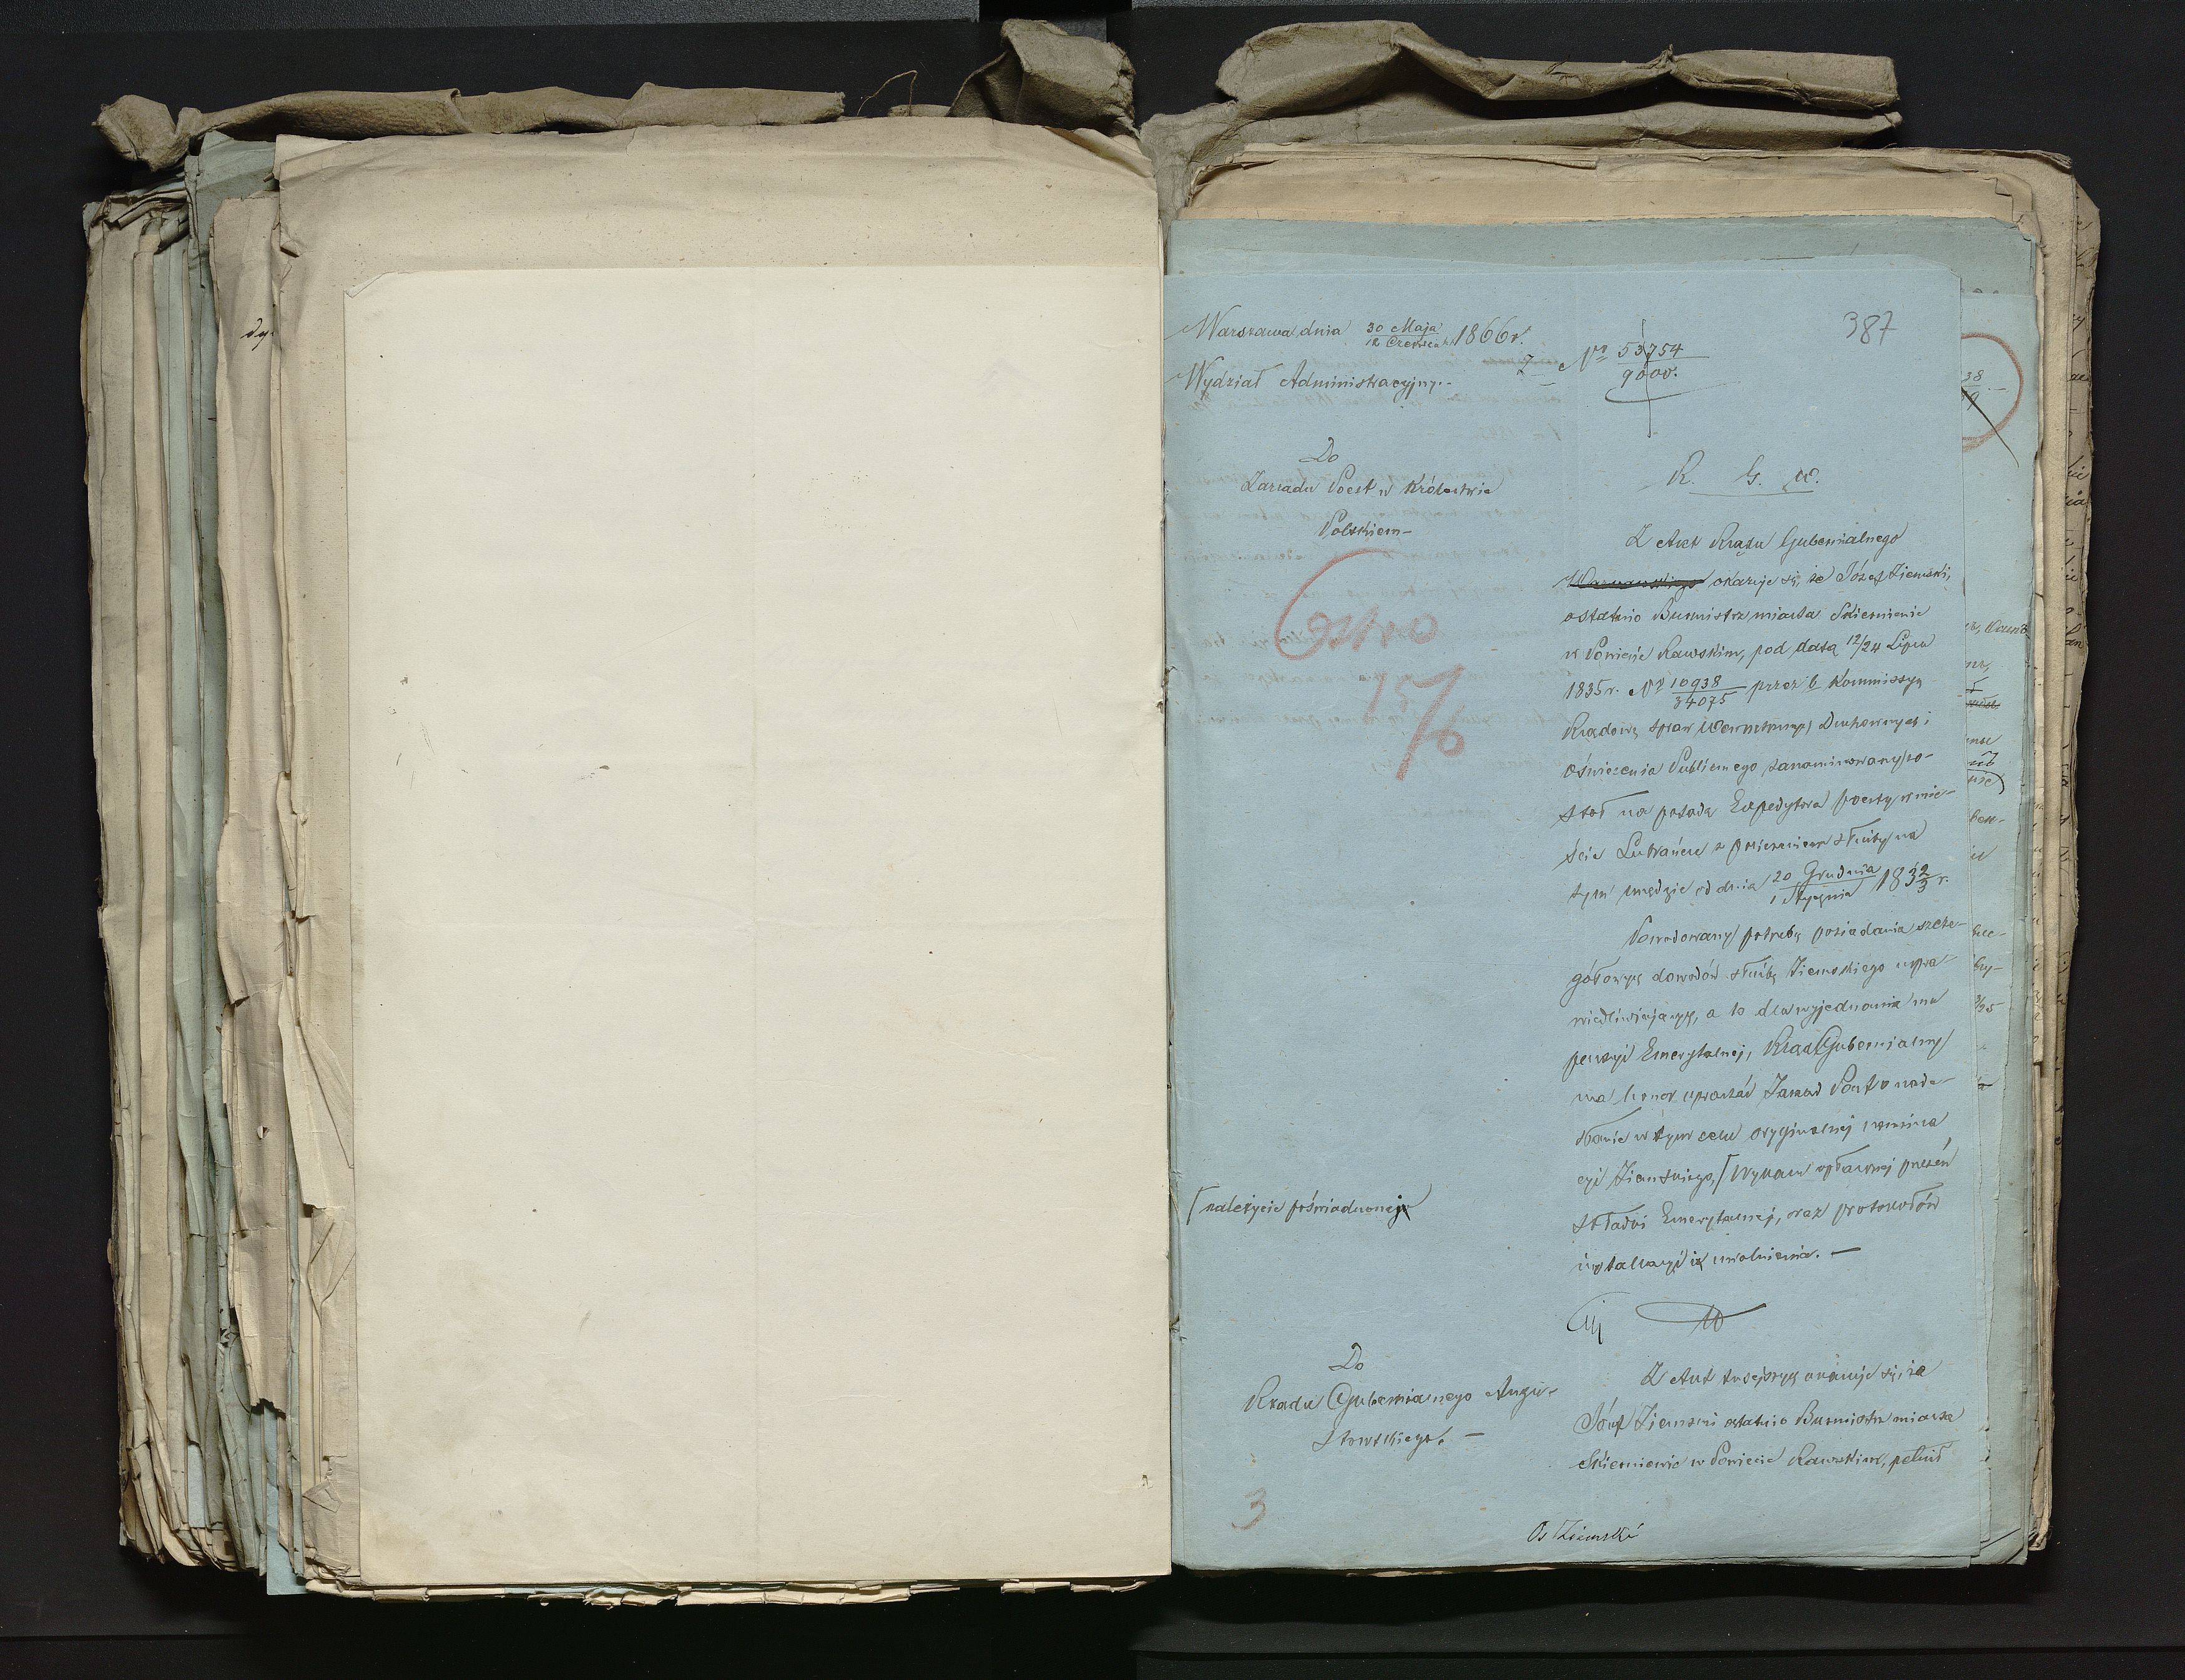 387
Warszawa dnia 30 Maja/12 Czerwca 1866 r.
Wydział Administracyjny.-
Z Nº 53754/9000.
Do
Zarządu Poczt w Królestwie
Polskiem-
R. G. W.
Z Akt Rządu Gubernialnego
Warszawskiego okazuje się, że Józef Ziemski,
ostatnio Burmistrz miasta Skierniewic
w Powiecie Rawskim, pod datą 12/24 Lipca
1835 r. Nº 10938/34075 przez b. Kommissyą
Rządową Spraw Wewnętrznych Duchownych i
Oświecenia Publicznego zanominowany zo-
stał na posadę Expedytora poczty w mie-
ście Lubrańcu z policzeniem służby na
tym urzędzie od dnia 20 Grudnia/1 Stycznia 183 2/3 r.
Powodowany potrzebą posiadania szcze-
gółowych dowodów służbę Ziemskiego uspra-
wiedliwiających, a to dla wyjednania mu
pensyi Emerytalnej, Rząd Gubernialny
ma honor upraszać Zarząd Poczt o nade-
słanie w tym celu oryginalnej nomina
cyi Ziemskiego, Wykazu opłaconej przezeń
składki Emerytalnej, oraz protokołów
instalacyi i uwolnienia. —
należycie poświadczonej
Ostro
15/6
Do
Rządu Gubernialnego Augu-
stowskiego. —
Z Akt tutejszych okazuje się, że
Józef Ziemski ostatnio Burmistrz miasta
Skierniewic w Powiecie Rawskim, pełnił
3
Os Ziemski